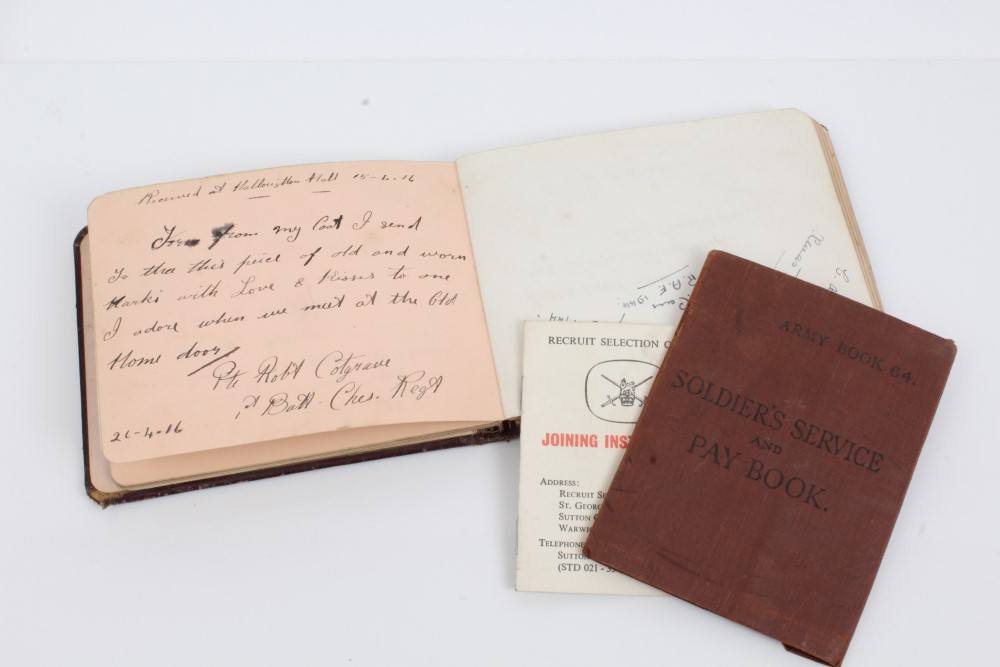 Received at Halloughton Hall 15-4-16
from my Coat I send
To tha this peice of old and worn
Karki with Love & Kisses to one
I adore when we meet at the Old
Home door
Pte Robt Cotgrave
1st Batt - Ches. Regt
21-4-16
R.A.F. 1944.
RECRUIT SELECTION
JOINING
ADDRESS:
RECRUIT
ST. GEORG
SUTTON
WARWI
TELEPHONE
SUTTO
(STD 021 -
ARMY BOOK 64.
SOLDIER'S SERVICE
AND
PAY BOOK.